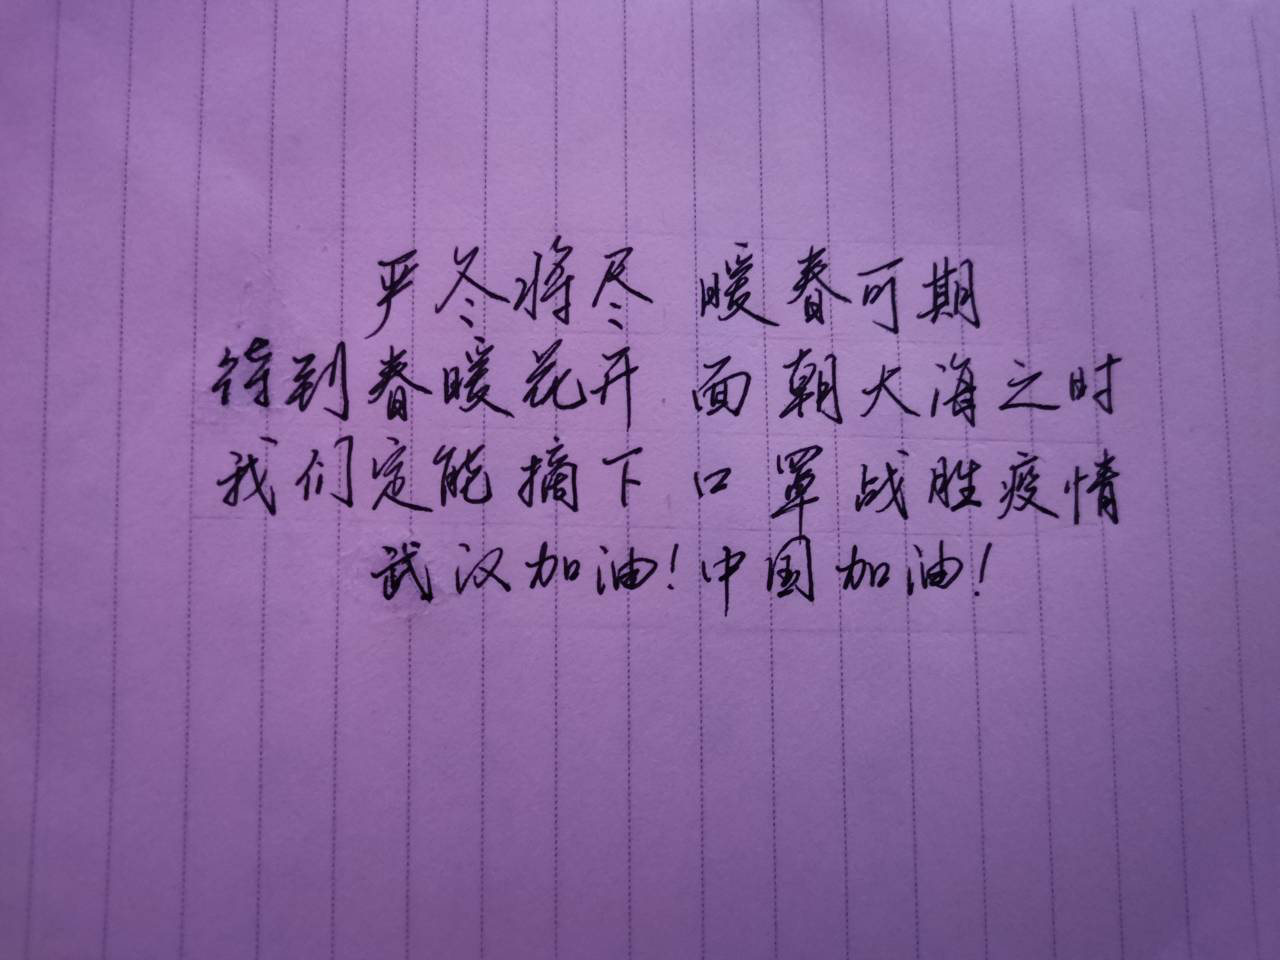 严冬将尽 暖春可期
待到春暖花开 面朝大海之时
我们定能摘下口罩战胜疫情
武汉加油!中国加油!